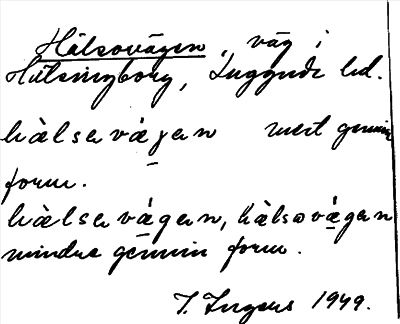 Hälsovägen, väg i
Hälsingborg, Luggude hd.
hàlsavágan mest genuin
form.
hàlsavágan, hàlsovágan
mindre genuin form.
I. Ingers 1949.